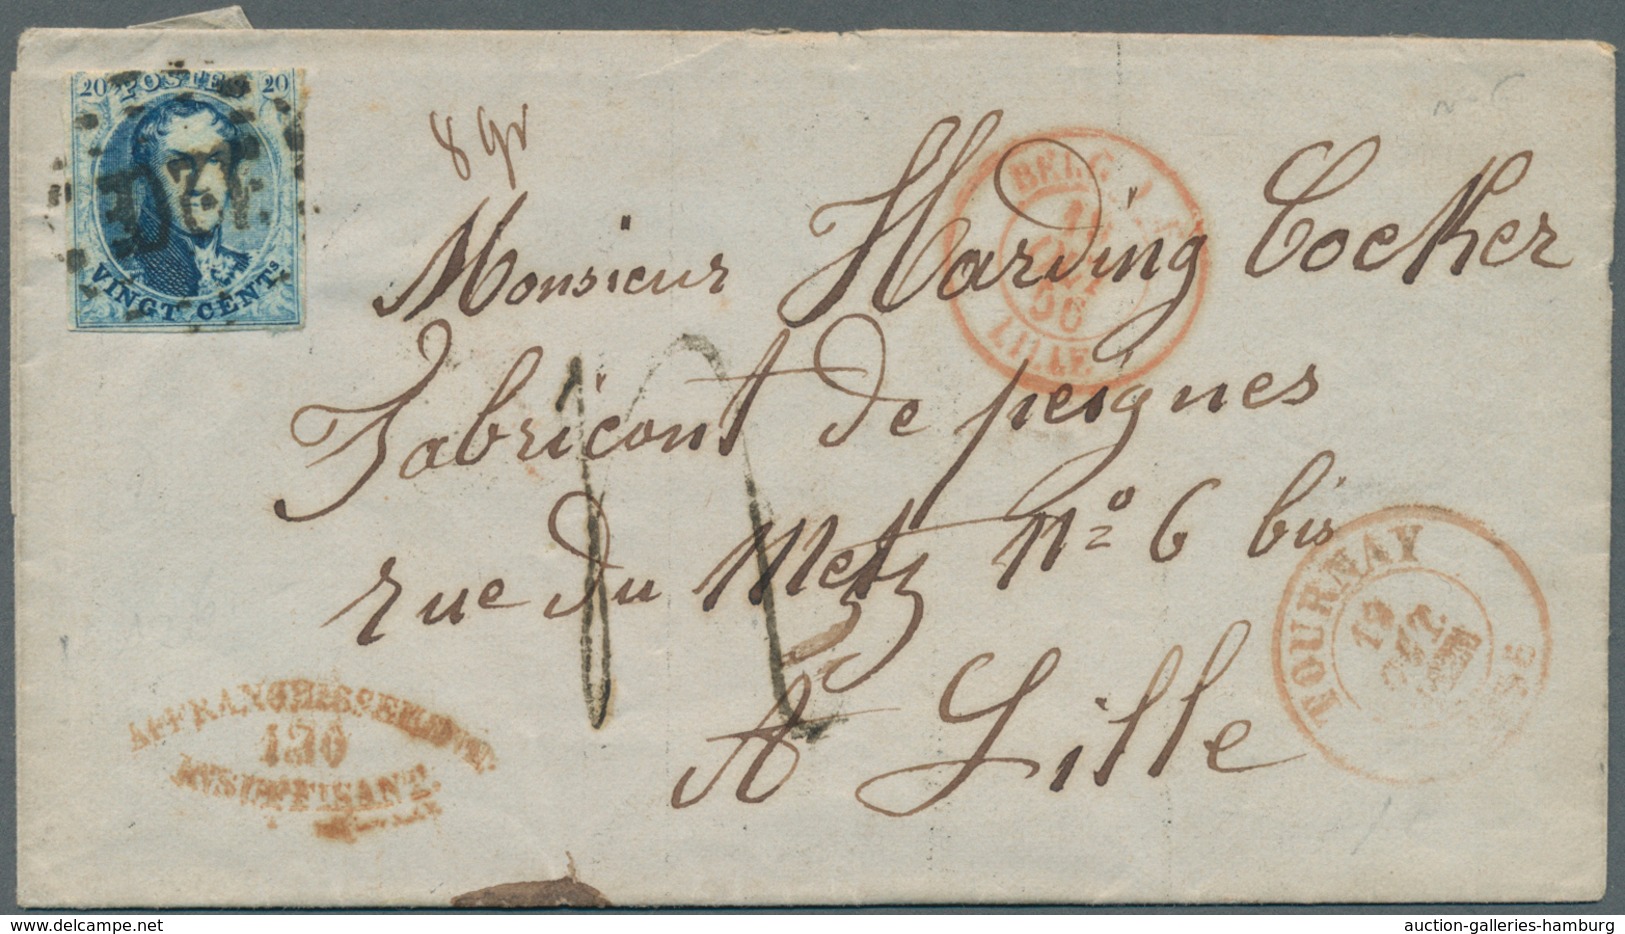 20 POSTES 20
VINGT CENTS
8 gr
BELG.
OCT
56
LILLE
Monsieur Harding Cocker
Fabricant de peignes
rue du Metz no 6 bis
A Lille
TOURNAY
12
OCT
AFFRANCHISSEMENT.
120
INSUFFISANT.
auction-galleries-hamburg